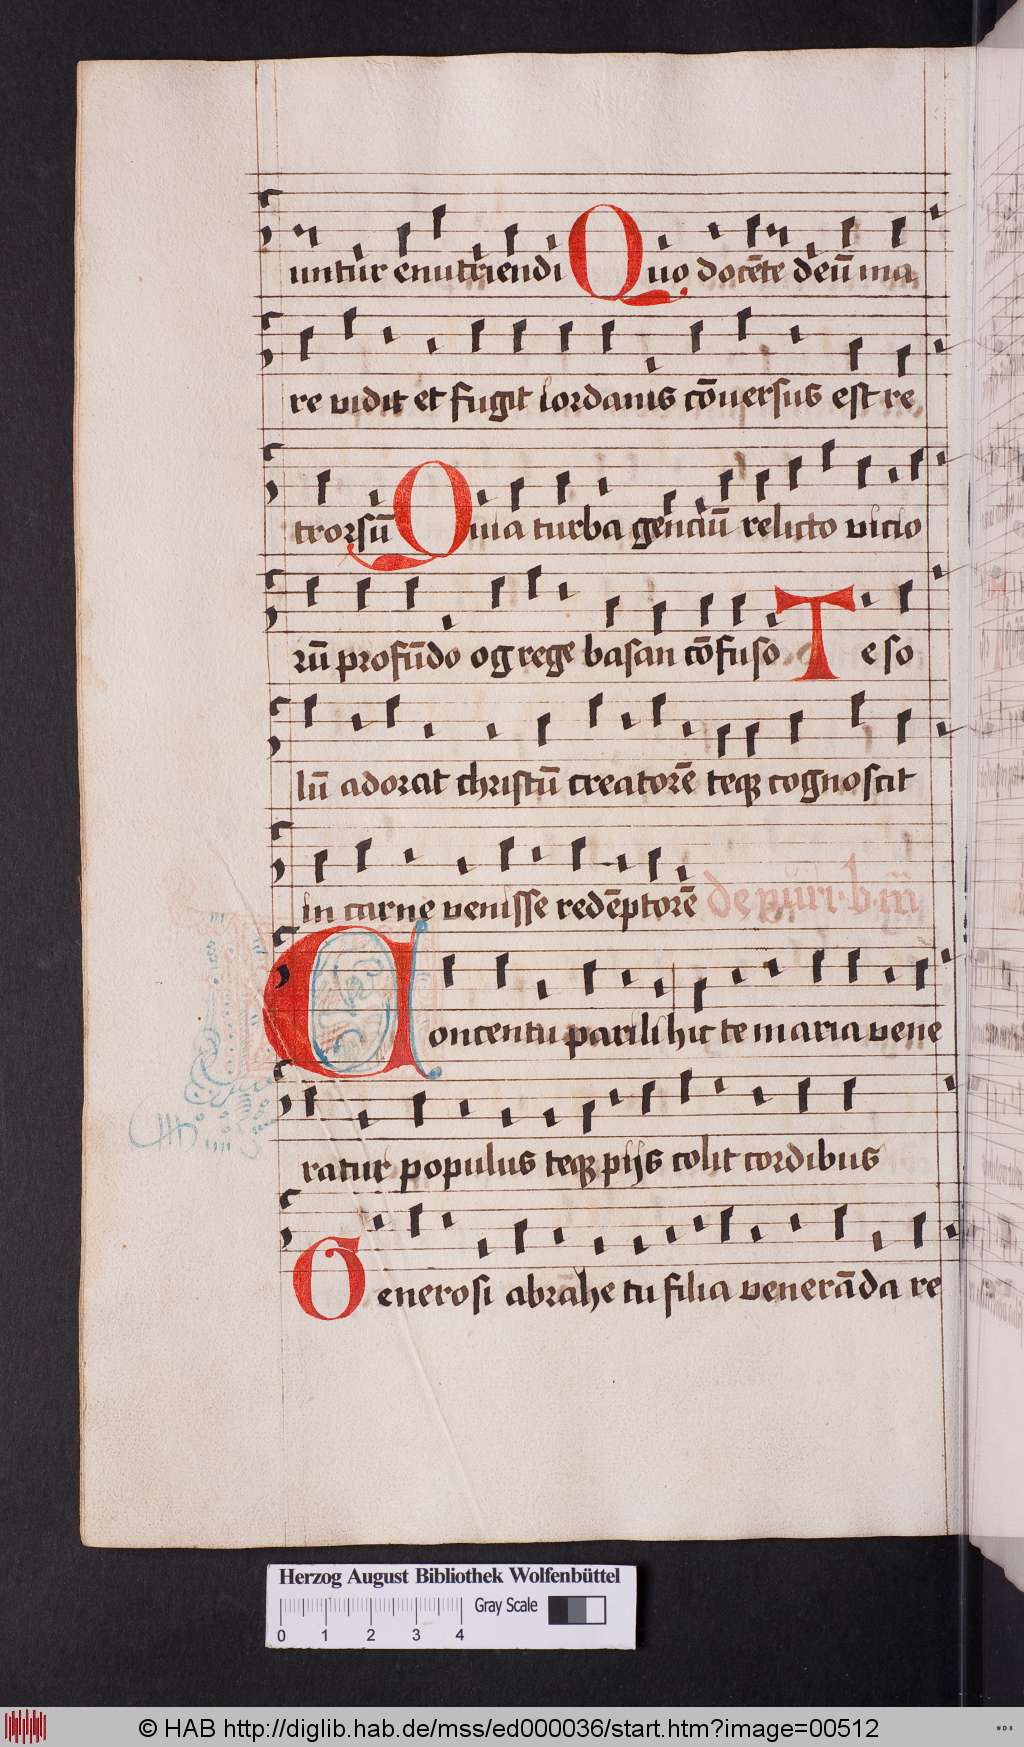 untur enutriendi Quo docēte deū ma
re vidit et fugit iordanis cōuersus est re
trorsū Quia turba genciū relicto vicio
rū profūdo og rege basan cōfuso Te so
lū adorat christū creatorē teq̣ cognoscit
in carne venisse redēptorē de puri. b. m̄
Concentu parili hic te maria vene
ratur populus teq̣ pijs colit cordibus
Generosi abrāhe tu filia venerāda re
Herzog August Bibliothek Wolfenbüttel
Gray Scale
0 1 2 3 4
© HAB http://diglib.hab.de/mss/ed000036/start.htm?image=00512